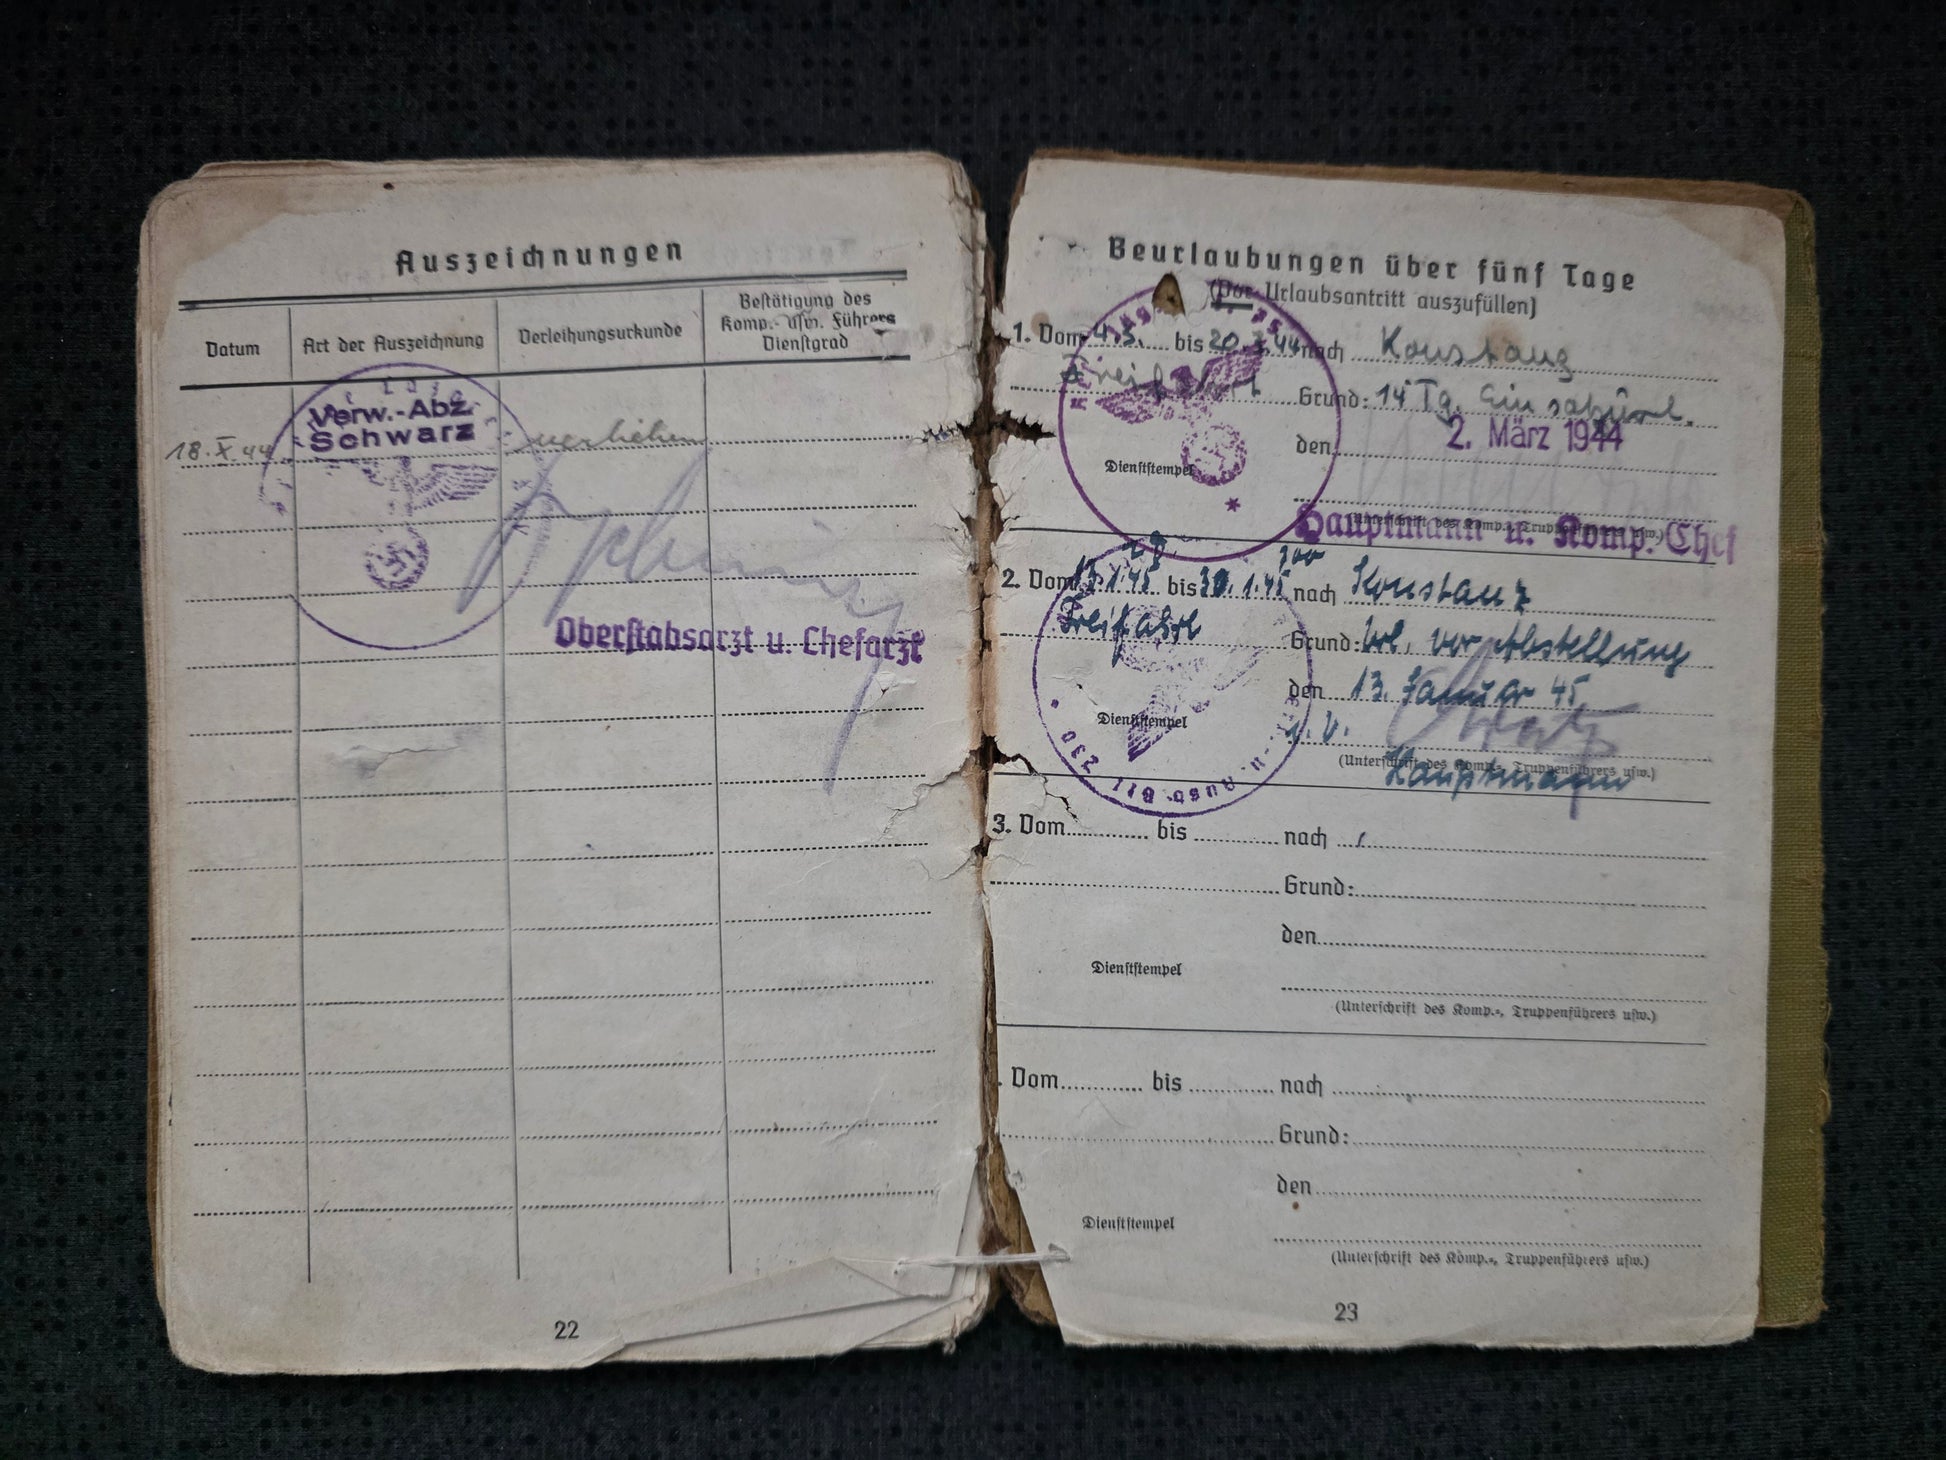 Auszeichnungen
Datum
Art der Auszeichnung
Verleihungsurkunde
Bestätigung des
Komp.- usw. Führers
Dienstgrad
Verw.-Abz.
Schwarz
18.X.44. verliehen
Oberstabsarzt u. Chefarzt
22
Beurlaubungen über fünf Tage
(Vor Urlaubsantritt auszufüllen)
1. Vom 4.3. bis 20.3.44 nach Konstanz
Freifahrt Grund: 14 Tg. Einsatzurl.
den 2. März 1944
Dienststempel
(Unterschrift des Komp.-, Truppenführers usw.)
Hauptmann u. Komp. Chef
2. Vom 13.1.45 bis 30.1.45 nach Konstanz
Freifahrt Grund: Url. vor Abstellung
den 13. Januar 45
Dienststempel
(Unterschrift des Komp.-, Truppenführers usw.)
Hauptmann
u. Ausb. Btl. 230
3. Vom bis nach
Grund:
den
Dienststempel
(Unterschrift des Komp.-, Truppenführers usw.)
. Vom bis nach
Grund:
den
Dienststempel
(Unterschrift des Komp.-, Truppenführers usw.)
23